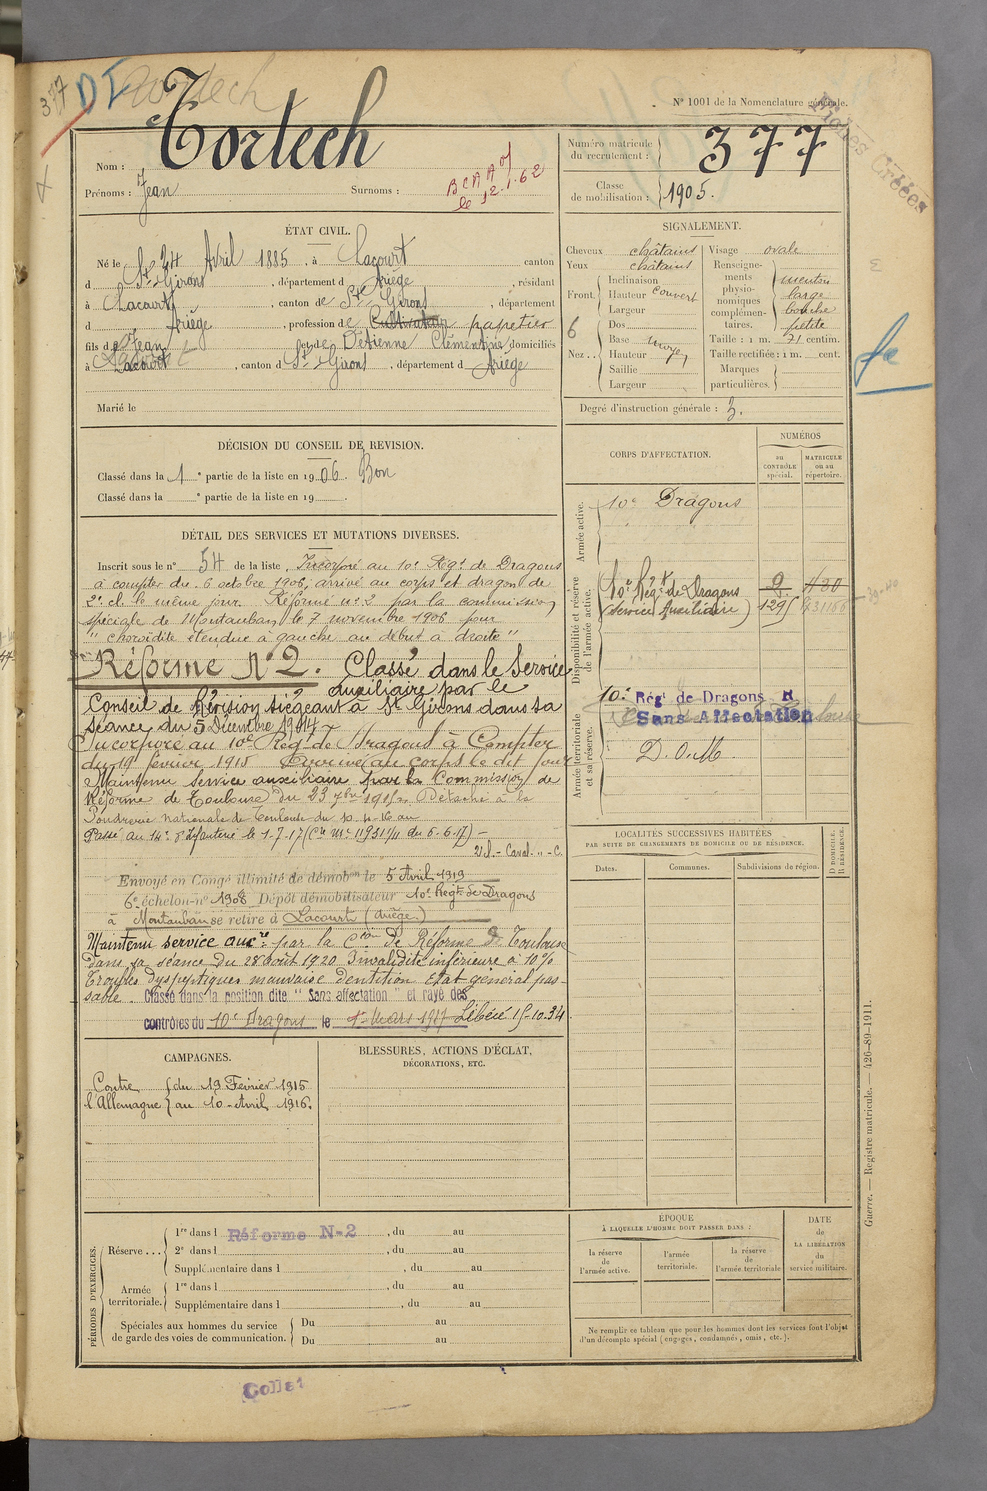 377
Tortech
N° 1001 de la Nomenclature générale.
Fiches Créées
Nom : Tortech
Prénoms : Jean Surnoms :
BCAA
le 12.1.62
Numéro matricule du recrutement : 377
Classe de mobilisation : 1905.
ÉTAT CIVIL.
Né le 24 Avril 1885, à Lacourt canton
d St Girons, département d Ariège, résidant
à Lacourt, canton de St Girons, département
d Ariège, profession de Cultivateur papetier
fils de Jean et de Détienne Clémentine, domiciliés
à Lacourt, canton d St Girons, département d Ariège
Marié le
SIGNALEMENT.
Cheveux châtains
Yeux châtains
Front. Inclinaison
Hauteur couvert
Largeur
Nez. Dos
Base moyen
Hauteur
Saillie
Largeur
Visage ovale
Renseignements physionomiques complémentaires. menton
large
bouche
petite
Taille : 1 m. 71 centim.
Taille rectifiée : 1 m. cent.
Marques particulières.
Degré d'instruction générale : 3.
DÉCISION DU CONSEIL DE REVISION.
Classé dans la 1e partie de la liste en 1906. Bon
Classé dans la e partie de la liste en 19 .
DÉTAIL DES SERVICES ET MUTATIONS DIVERSES.
Inscrit sous le n° 54 de la liste. Incorporé au 10e Régt de Dragons
à compter du 6 octobre 1906, arrivé au corps et dragon de
2e cl. le même jour. Réformé n° 2 par la commission
spéciale de Montauban le 7 novembre 1906 pour
"choroïdite étendue à gauche au début à droite"
Réforme N°2. Classé dans le Service
auxiliaire par le
Conseil de Révision siégeant à St Girons dans sa
séance du 5 Décembre 1914
Incorporé au 10e Régt de Dragons à Compter
du 19 février 1915 Arrivé au corps le dit jour
Maintenu service auxiliaire par la Commission de
Réforme de Toulouse du 23 7bre 1915. Détaché à la
Poudrerie Nationale de Toulouse du 10-4-16 au
Passé au 14e d'Infanterie le 1-7-17 (Cre Mle 11951 du 6-6-17) -
Envoyé en Congé illimité de démobon le 5 Avril 1919
6e échelon - n° 1908 Dépôt démobilisateur 10e Régt de Dragons
à Montauban se retire à Lacourt (Ariège)
Maintenu service auxre par la Con de Réforme de Toulouse
dans sa séance du 28 Août 1920 Invalidité inférieure à 10%
Troubles dyspeptiques mauvaise dentition Etat général pas-
sable. Classé dans la position dite "Sans affectation" et rayé des
contrôles du 10e Dragons le 1er Mars 1927 Libéré 15-10-34
CORPS D'AFFECTATION.
NUMÉROS
au CONTRÔLE spécial.
MATRICULE ou au répertoire.
Armée active.
10e Dragons
Disponibilité et réserve de l'armée active.
10e Régt de Dragons
(Service Auxiliaire)
Armée territoriale et sa réserve.
10e Régt de Dragons R
Sans Affectation
D.O.M.
LOCALITÉS SUCCESSIVES HABITÉES
PAR SUITE DE CHANGEMENTS DE DOMICILE OU DE RÉSIDENCE.
Dates. Communes. Subdivisions de région.
D DOMICILE. R RÉSIDENCE.
CAMPAGNES.
Contre l'Allemagne { du 19 Février 1915
au 10 Avril 1916.
BLESSURES, ACTIONS D'ÉCLAT,
DÉCORATIONS, ETC.
PÉRIODES D'EXERCICES.
Réserve ... 1re dans l Réforme N-2 , du au
2e dans l , du au
Supplémentaire dans l , du au
Armée territoriale. 1re dans l , du au
Supplémentaire dans l , du au
Spéciales aux hommes du service de garde des voies de communication. Du au
Du au
ÉPOQUE
À LAQUELLE L'HOMME DOIT PASSER DANS :
la réserve de l'armée active.
l'armée territoriale.
la réserve de l'armée territoriale
DATE de LA LIBÉRATION du service militaire.
Ne remplir ce tableau que pour les hommes dont les services font l'objet
d'un décompte spécial (engagés, condamnés, omis, etc.).
Guerre. — Registre matricule. — 426-89-1911.
Collat